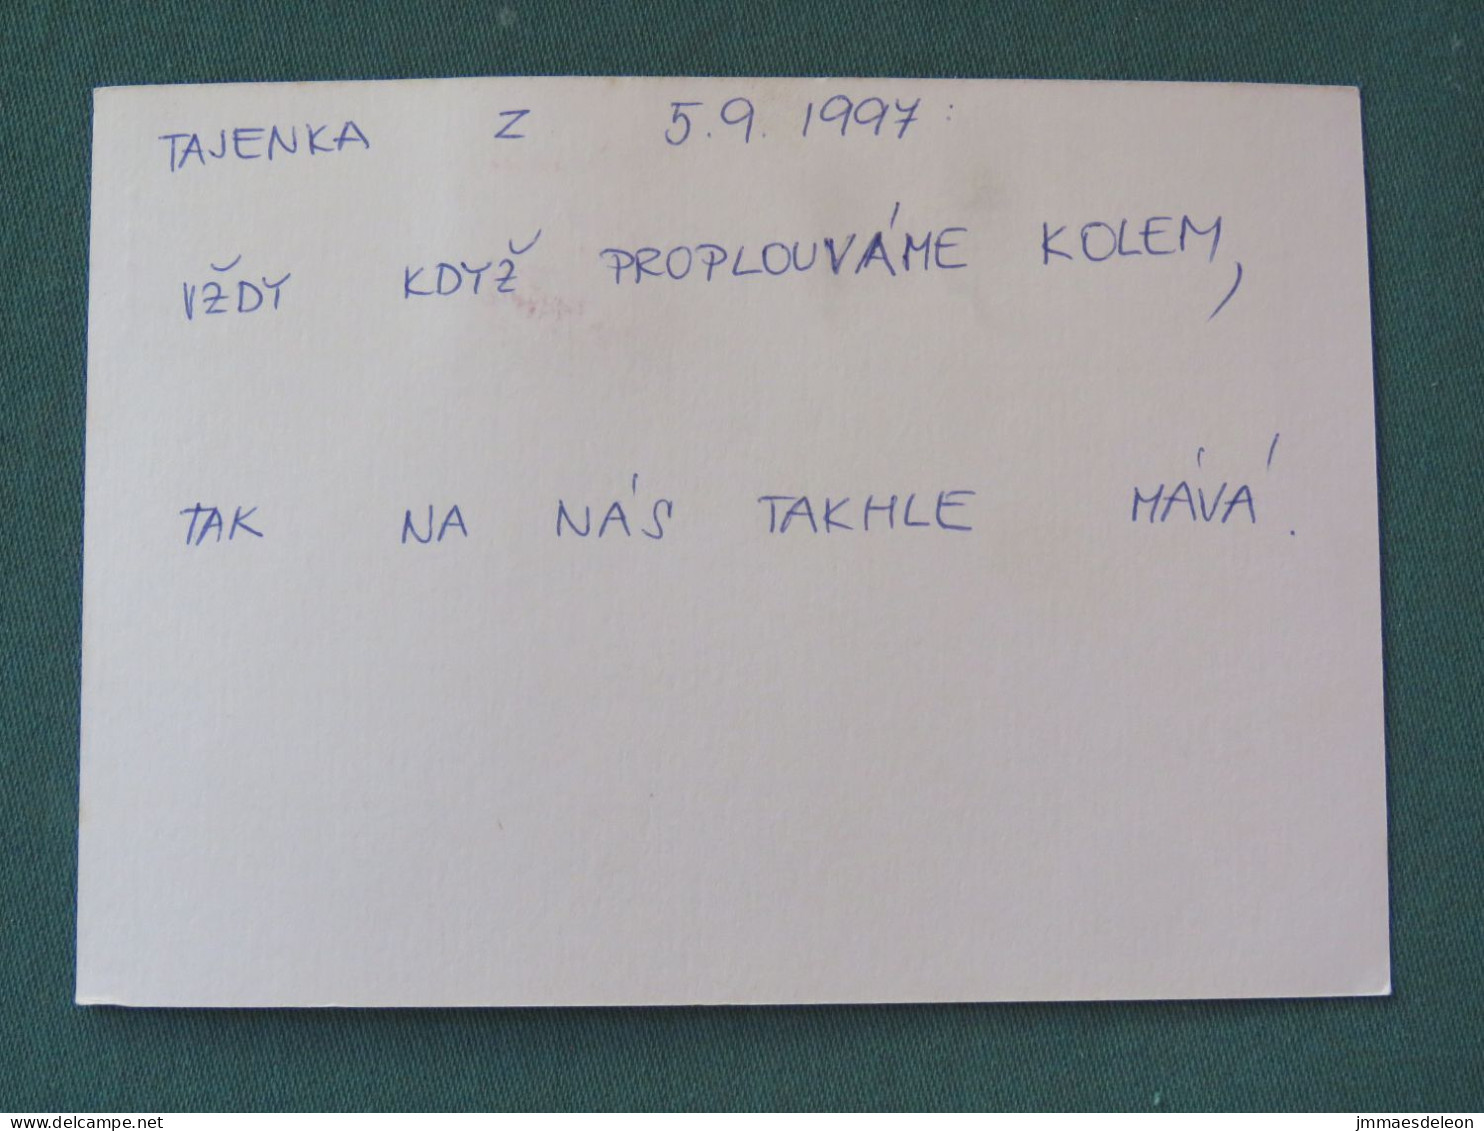 TAJENKA Z 5.9.1997:
VŽDY KDYŽ PROPLOUVÁME KOLEM,
TAK NA NÁS TAKHLE MÁVÁ.
delcampe.net
jmmaesdeleon